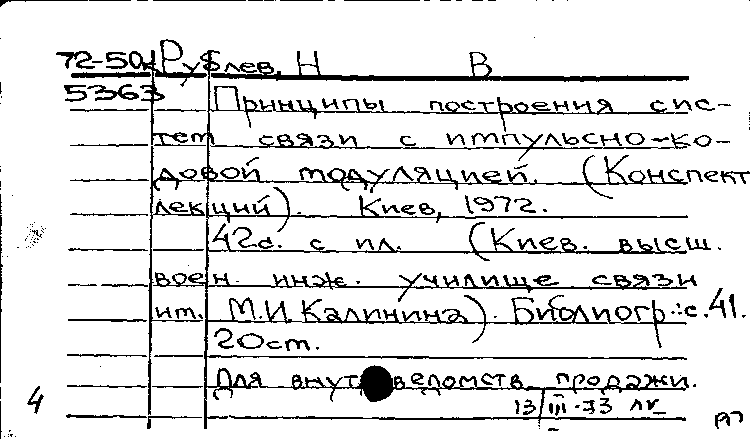 72-50к Рублев, Н В
5363 Принципы построения сис-
тем связи с импульсно-ко-
довой модуляцией. (Конспект
лекций). Киев, 1972.
42с. с ил. (Киев. высш.
воен. инж. училище связи
им. М.И. Калинина). Библиогр.: с. 41.
20см.
Для внутриведомств. продажи.
4 13/III-73